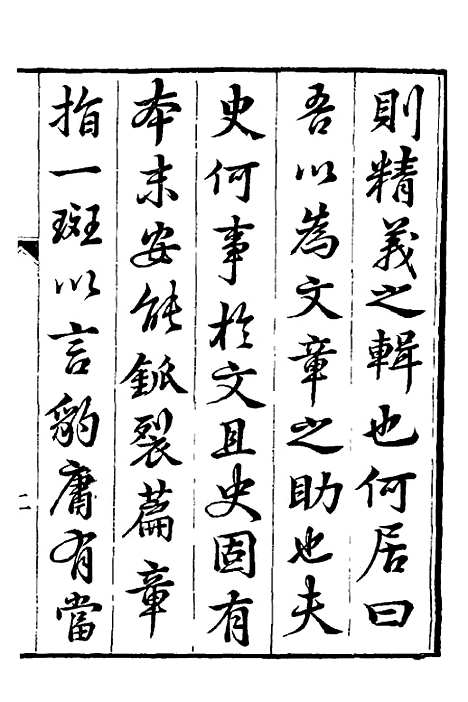 則精義之輯也何居曰
吾以為文章之助也夫
史何事於文且史固有
本末安能釽裂篇章
指一斑以言豹庸有當
二